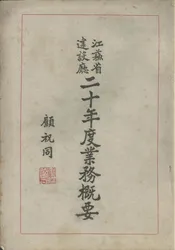 江蘇省
建設廳
二十年度業務概要
顧祝同